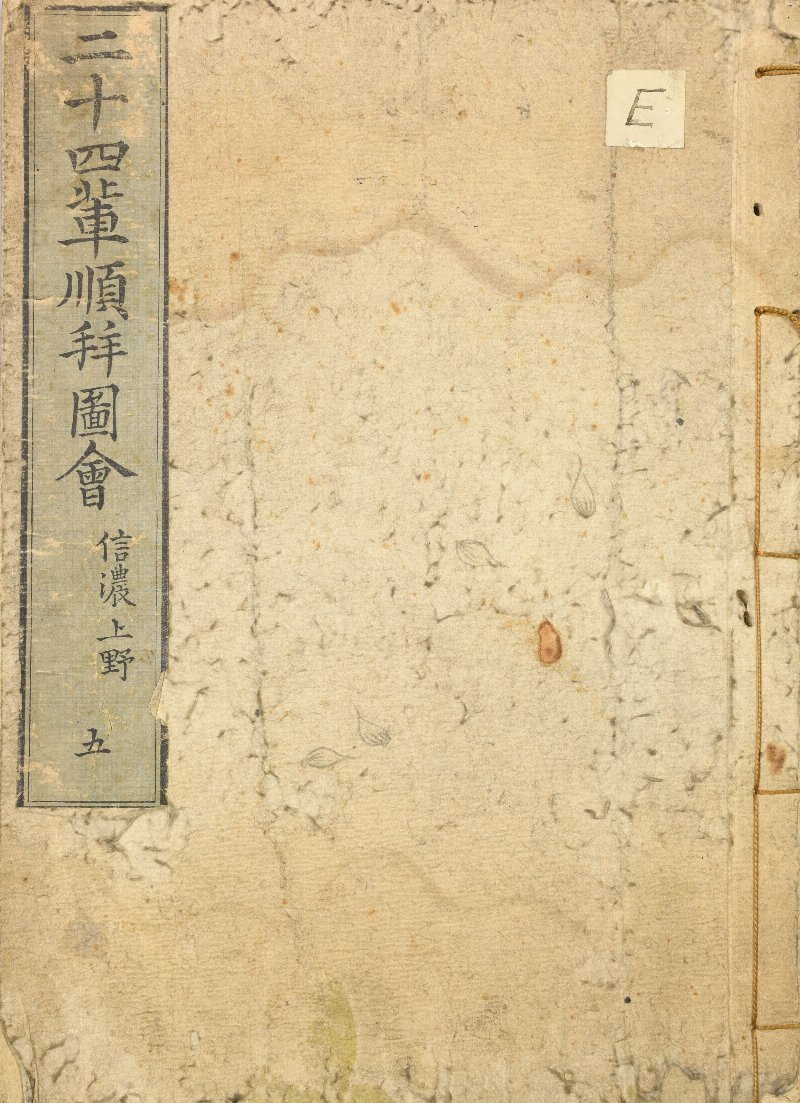 二十四輩順拜圖會
信濃上野
五
E